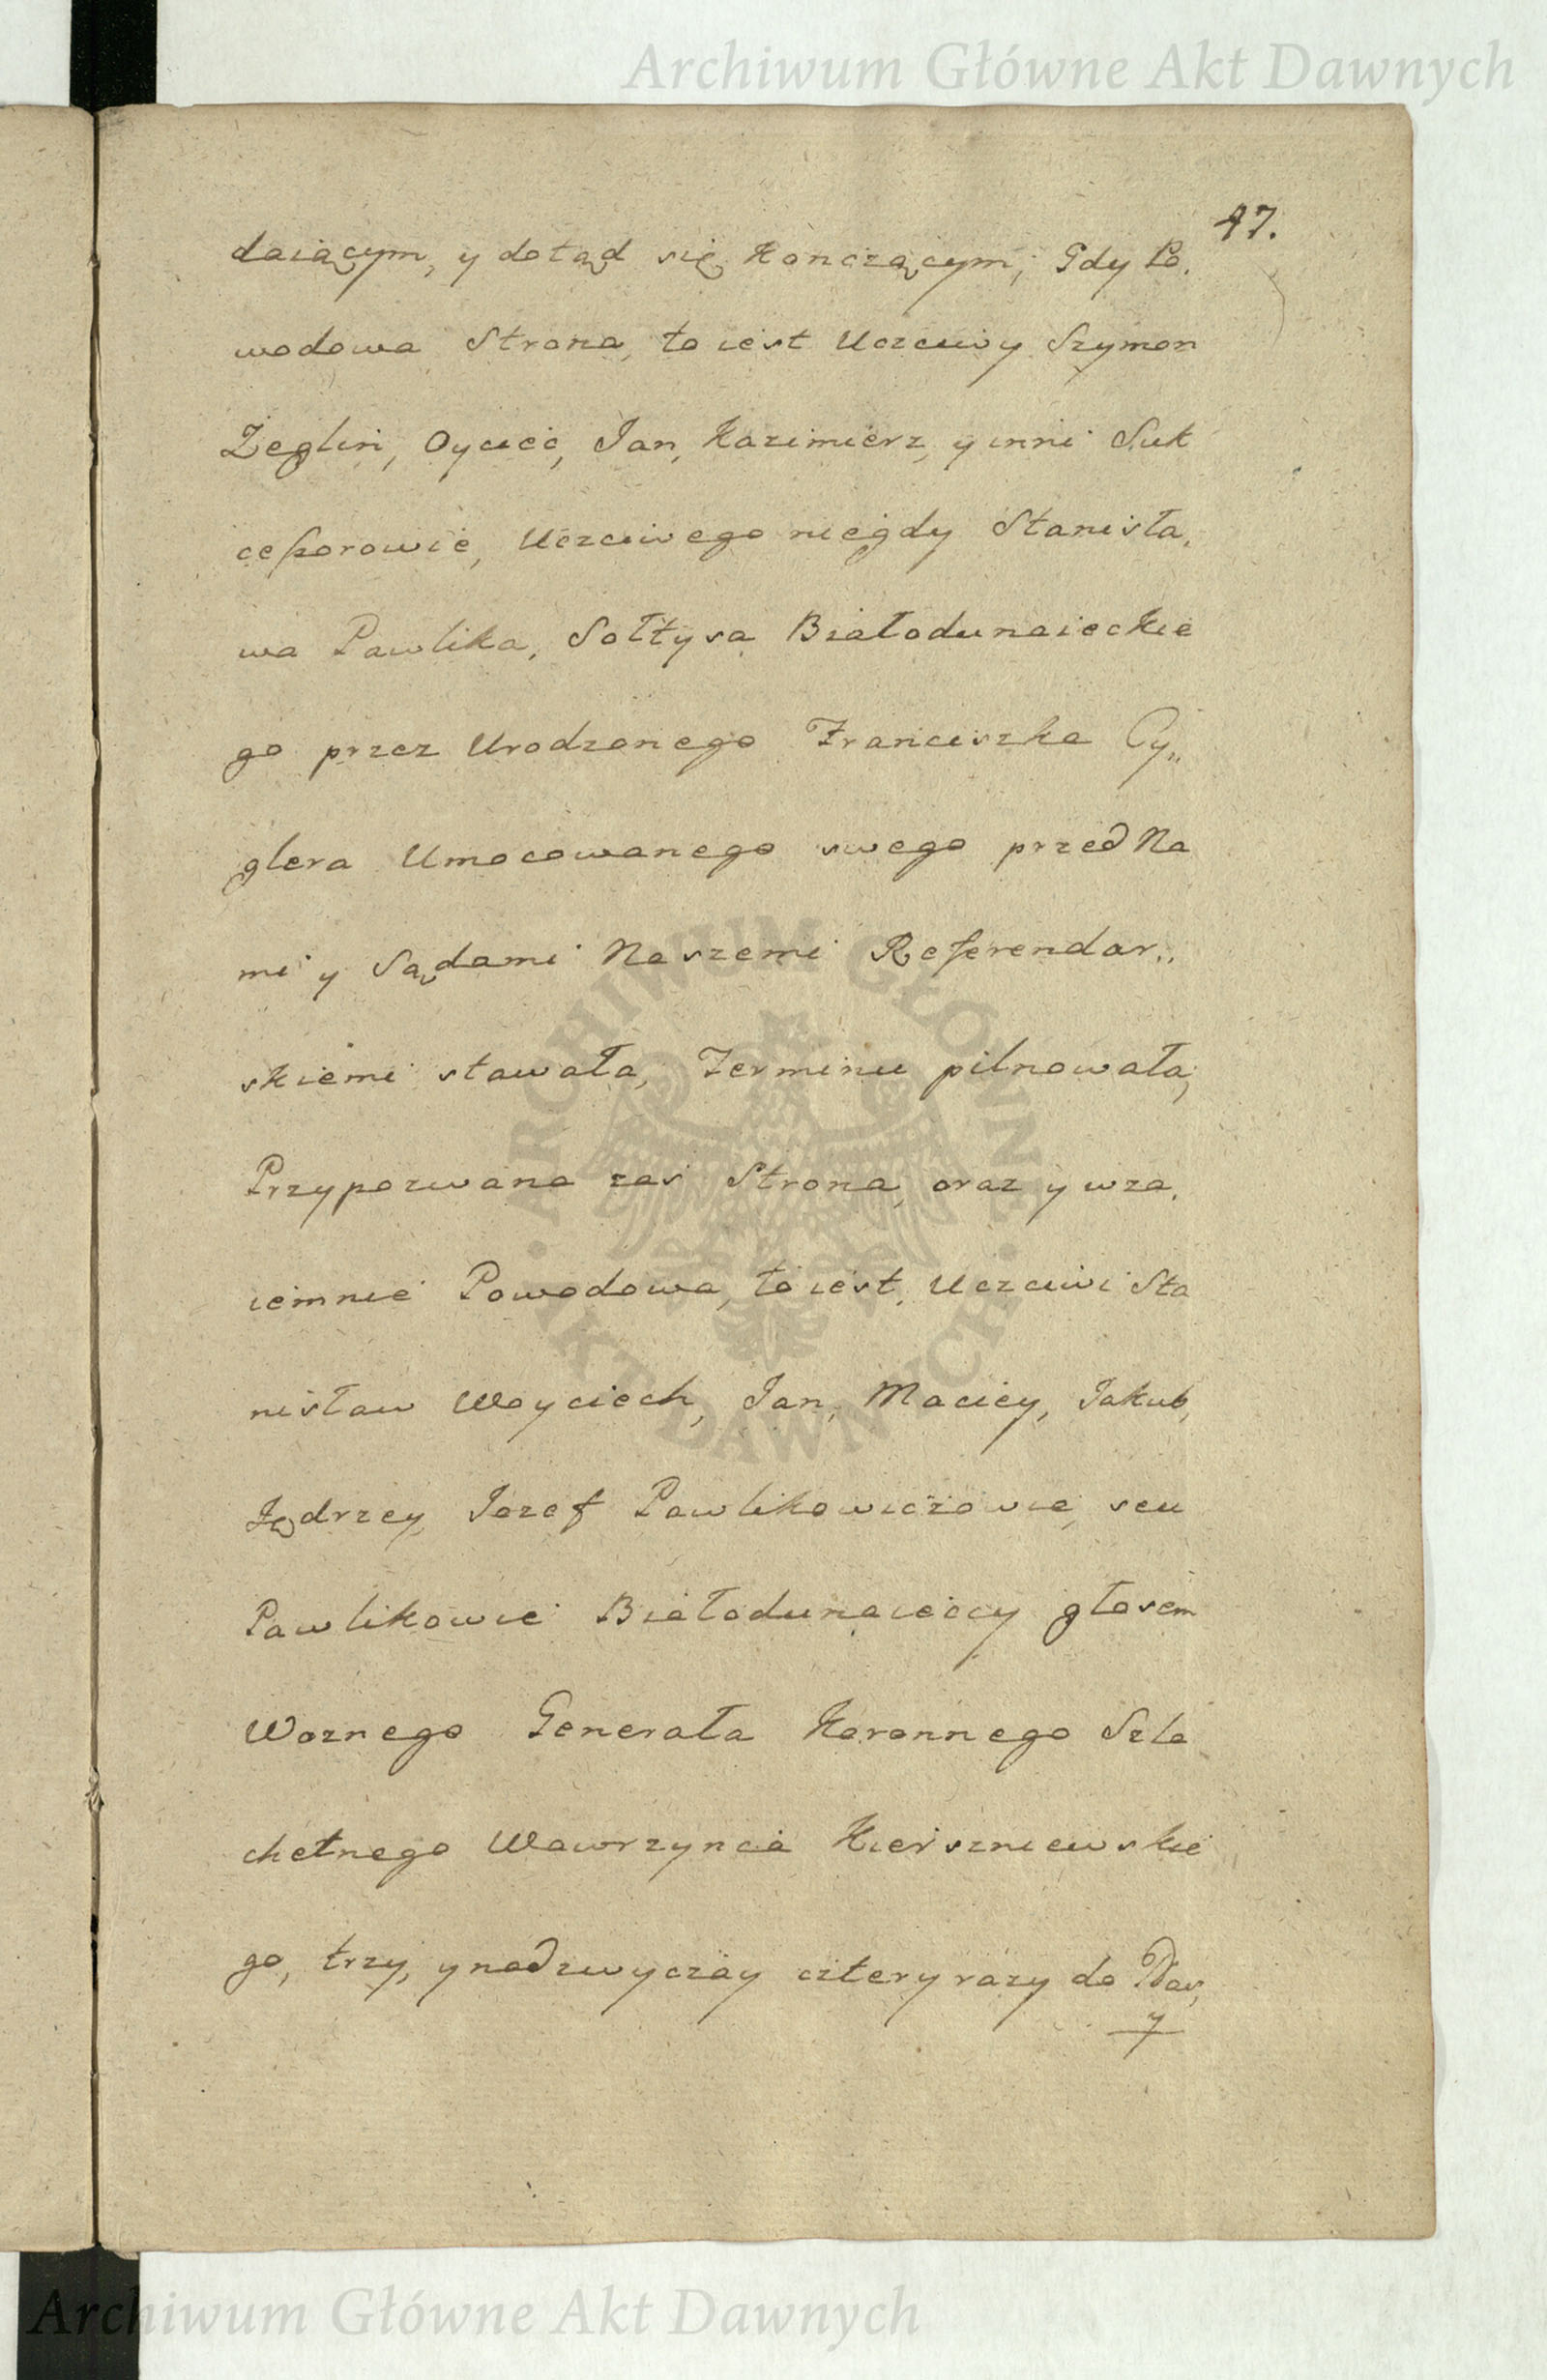 Archiwum Główne Akt Dawnych
47.
daiącym, y dotąd się Konczącym, Gdy Po,
wodowa Strona, to iest Uczciwy Szymon
Zeglin, Oyciec, Jan, Kazimierz, y inni Suk
ceſsorowie, Uczciwego niegdy Stanisła,
wa Pawlika, Sołtysa Białodunaieckie
go przez Urodzonego Franciszka Cy,,
glera Umocowanego swego przed Na
mi y Sądami Naszemi Referendar,,
skiemi stawała, Terminu pilnowała,
Przypozwana zaś Strona, oraz y wza,
iemnie Powodowa, to iest, Uczciwi Sta
nisław Woyciech, Jan, Maciey, Jakub,
Jędrzey, Jozef Pawlikowiczowie, seu
Pawlikowie Białodunaieccy głosem
Woznego Generała Koronnego Szla
chetnego Wawrzynca Kierszniewskie
go, trzy, y nadzwyczay cztery razy do
y
ARCHIWUM GŁÓWNE · AKT DAWNYCH ·
Archiwum Główne Akt Dawnych